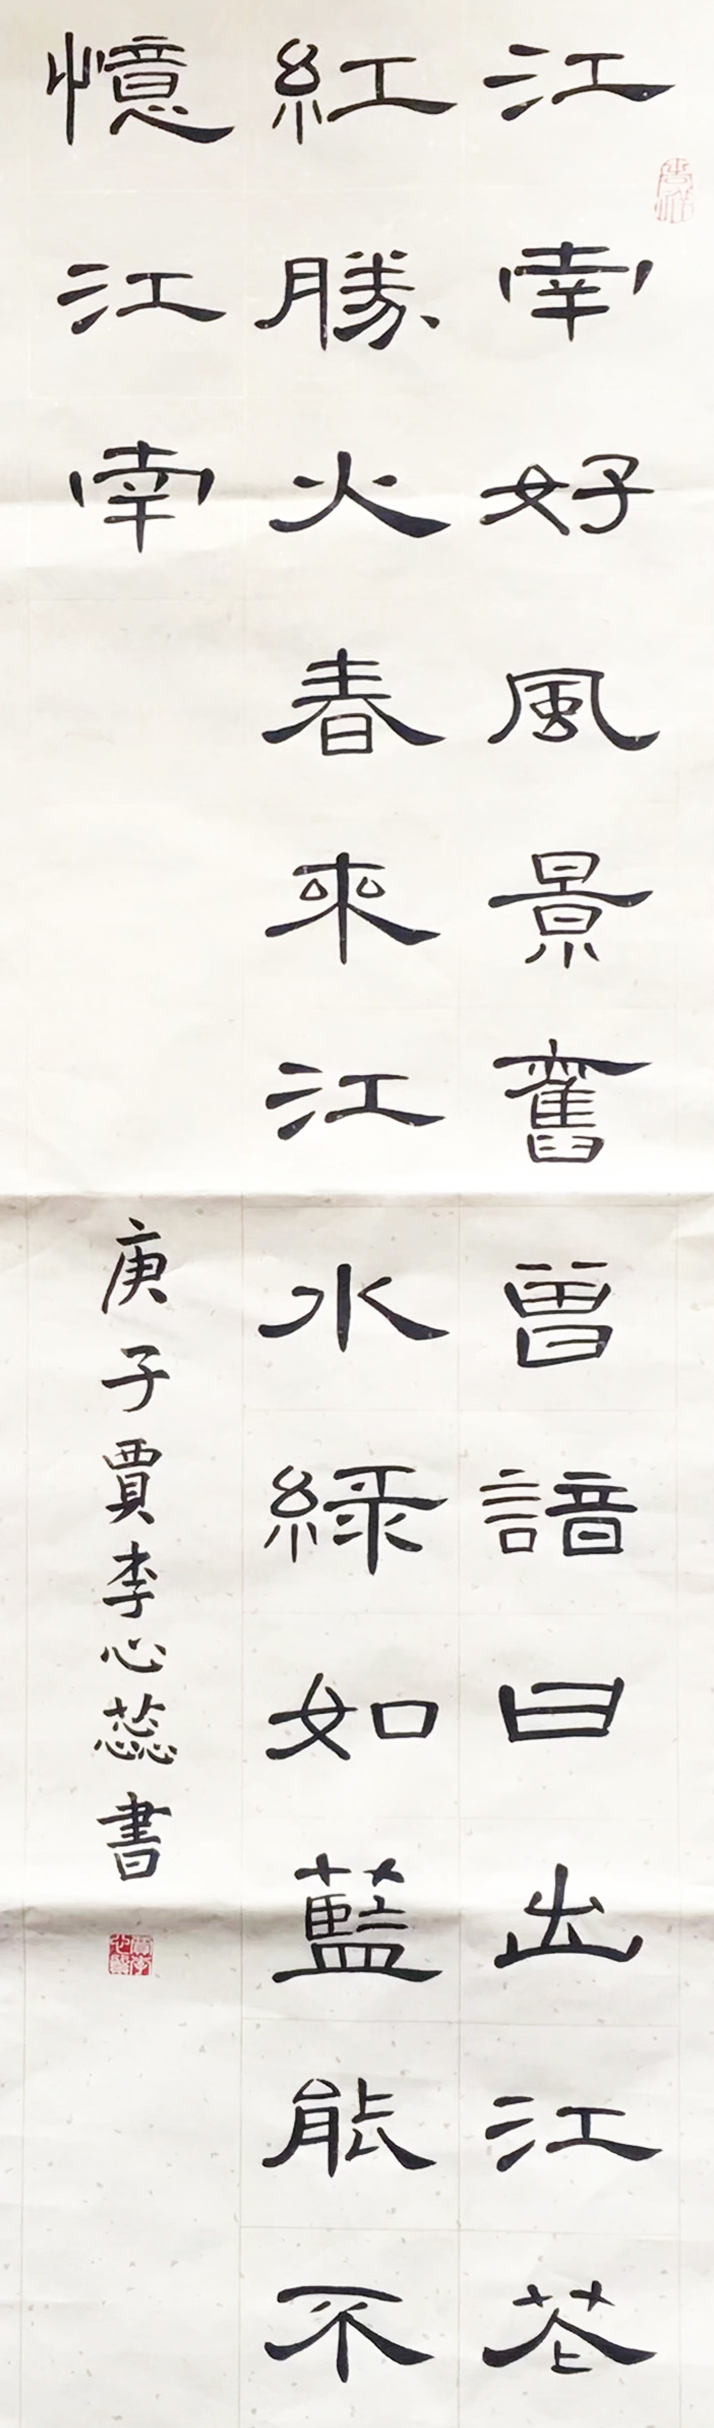 吉祥
江南好風景舊曾諳日出江花
紅勝火春來江水綠如藍能不
憶江南
庚子賈李心蕊書
賈李心蕊